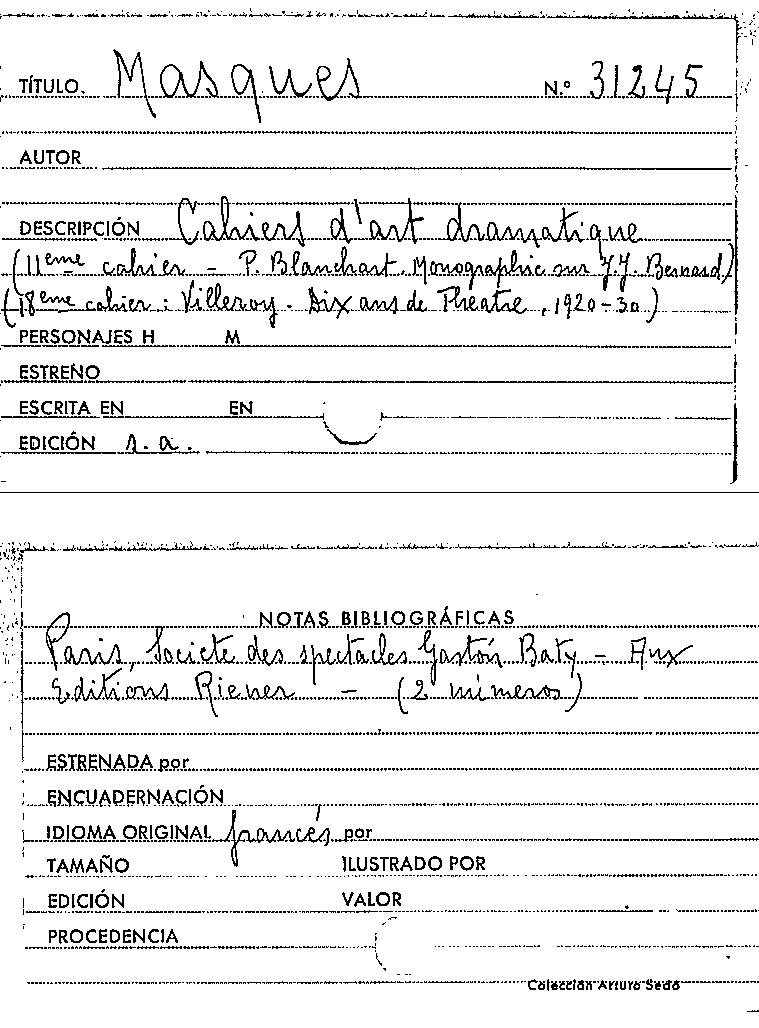 TÍTULO. Masques N.º 31245
AUTOR
DESCRIPCIÓN Cahiers d'art dramatique
(11eme cahier - P. Blanchart. Monographie sur J.J. Bernard)
(18eme cahier: Villeroy. Dix ans de Theatre, 1920-30)
PERSONAJES H M
ESTRENO
ESCRITA EN EN
EDICIÓN s.a.
NOTAS BIBLIOGRÁFICAS
Paris, Societe des spectacles Gastón Baty - Aux
Editions Rieuer - (2 números)
ESTRENADA por
ENCUADERNACIÓN
IDIOMA ORIGINAL francés por
TAMAÑO ILUSTRADO POR
EDICIÓN VALOR
PROCEDENCIA
Colección Arturo Sedó